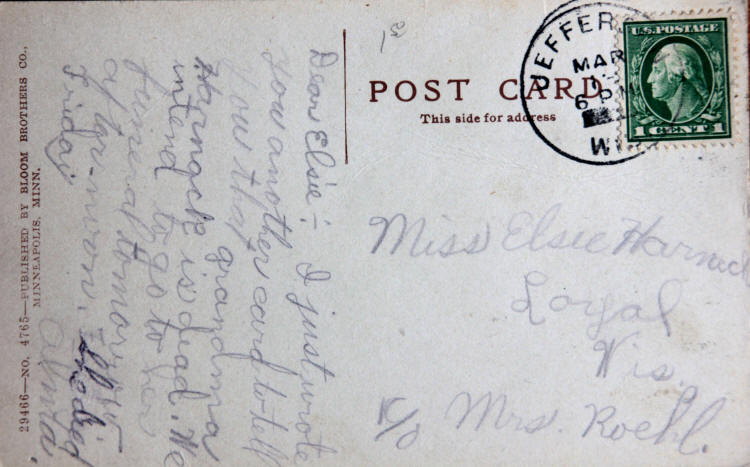 29466—NO. 4765—PUBLISHED BY BLOOM BROTHERS CO.,
MINNEAPOLIS, MINN.
Dear Elsie:- I just wrote
you another card to tell
you that grandma
Harnack is dead. We
intend to go to her
funeral tomorrow
after-noon. She died
Friday
Alma.
1st
POST CARD
This side for address
JEFFER
MAR
6 PM
WI
U.S. POSTAGE
1 CENT 1
Miss Elsie Harnack
Loyal
Wis.
c/o Mrs. Roehl.